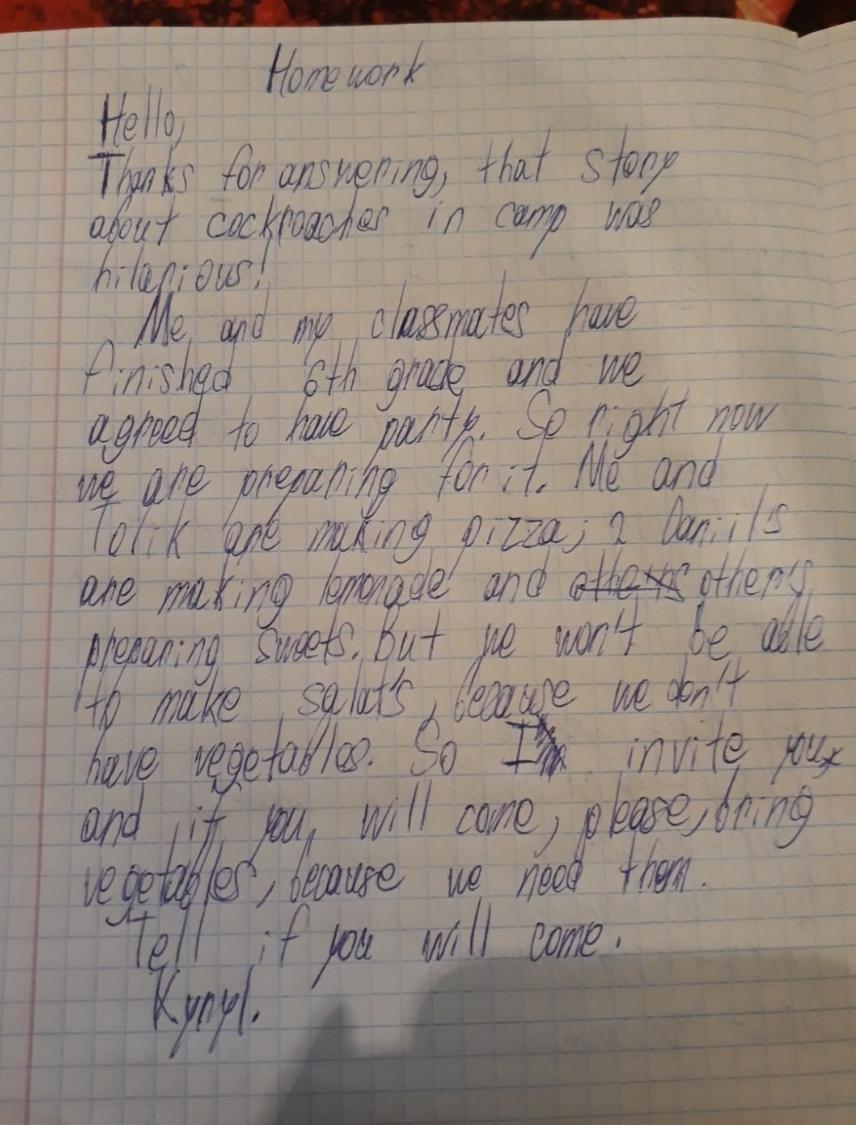 Homework
Hello,
Thanks for answering, that story
about cockroaches in camp was
hilarious!
Me and my classmates have
finished 6th grade and we
agreed to have party. So right now
we are preparing for it. Me and
Tolik are making pizza; 2 Daniil's
are making lemonade and others other's
preparing sweets. But we won't be able
to make salat's, because we don't
have vegetables. So I invite you,
and if you will come, please, bring
vegetables, because we need them.
Tell if you will come.
Kyryl.